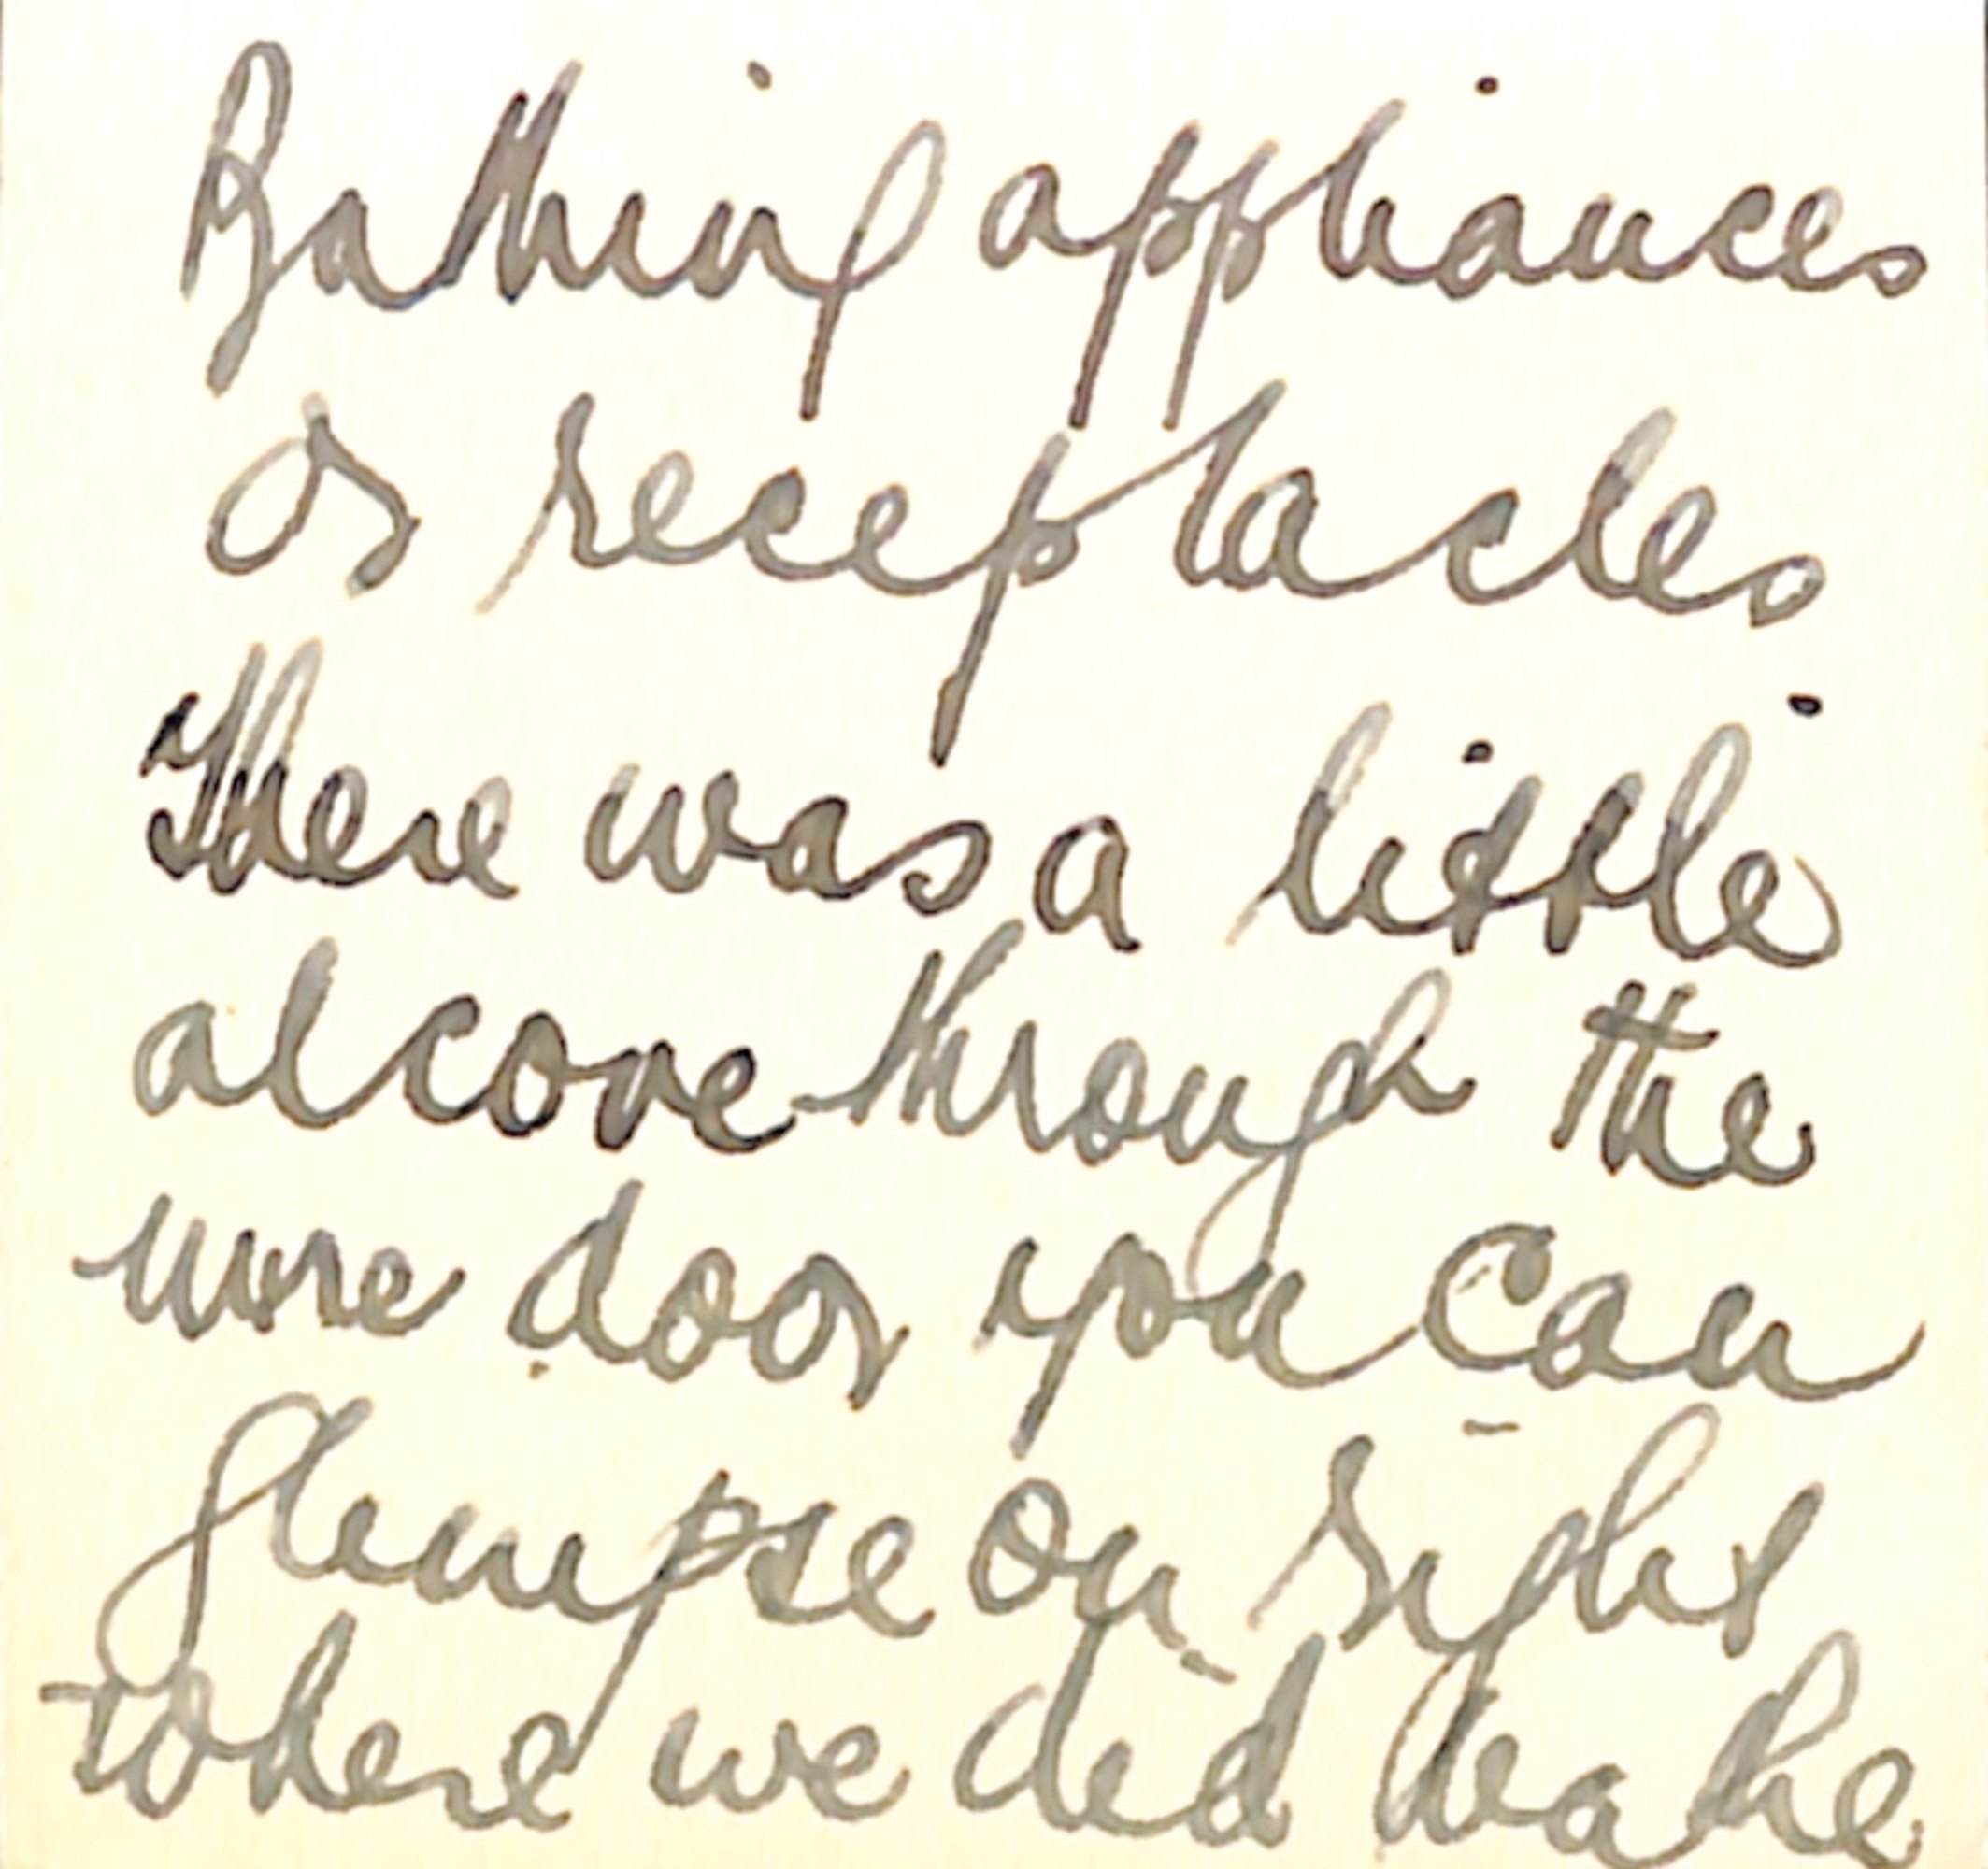 Bathing appliances
or receptacles
There was a little
alcove through the
wire door you can
glimpse on right
where we did bake